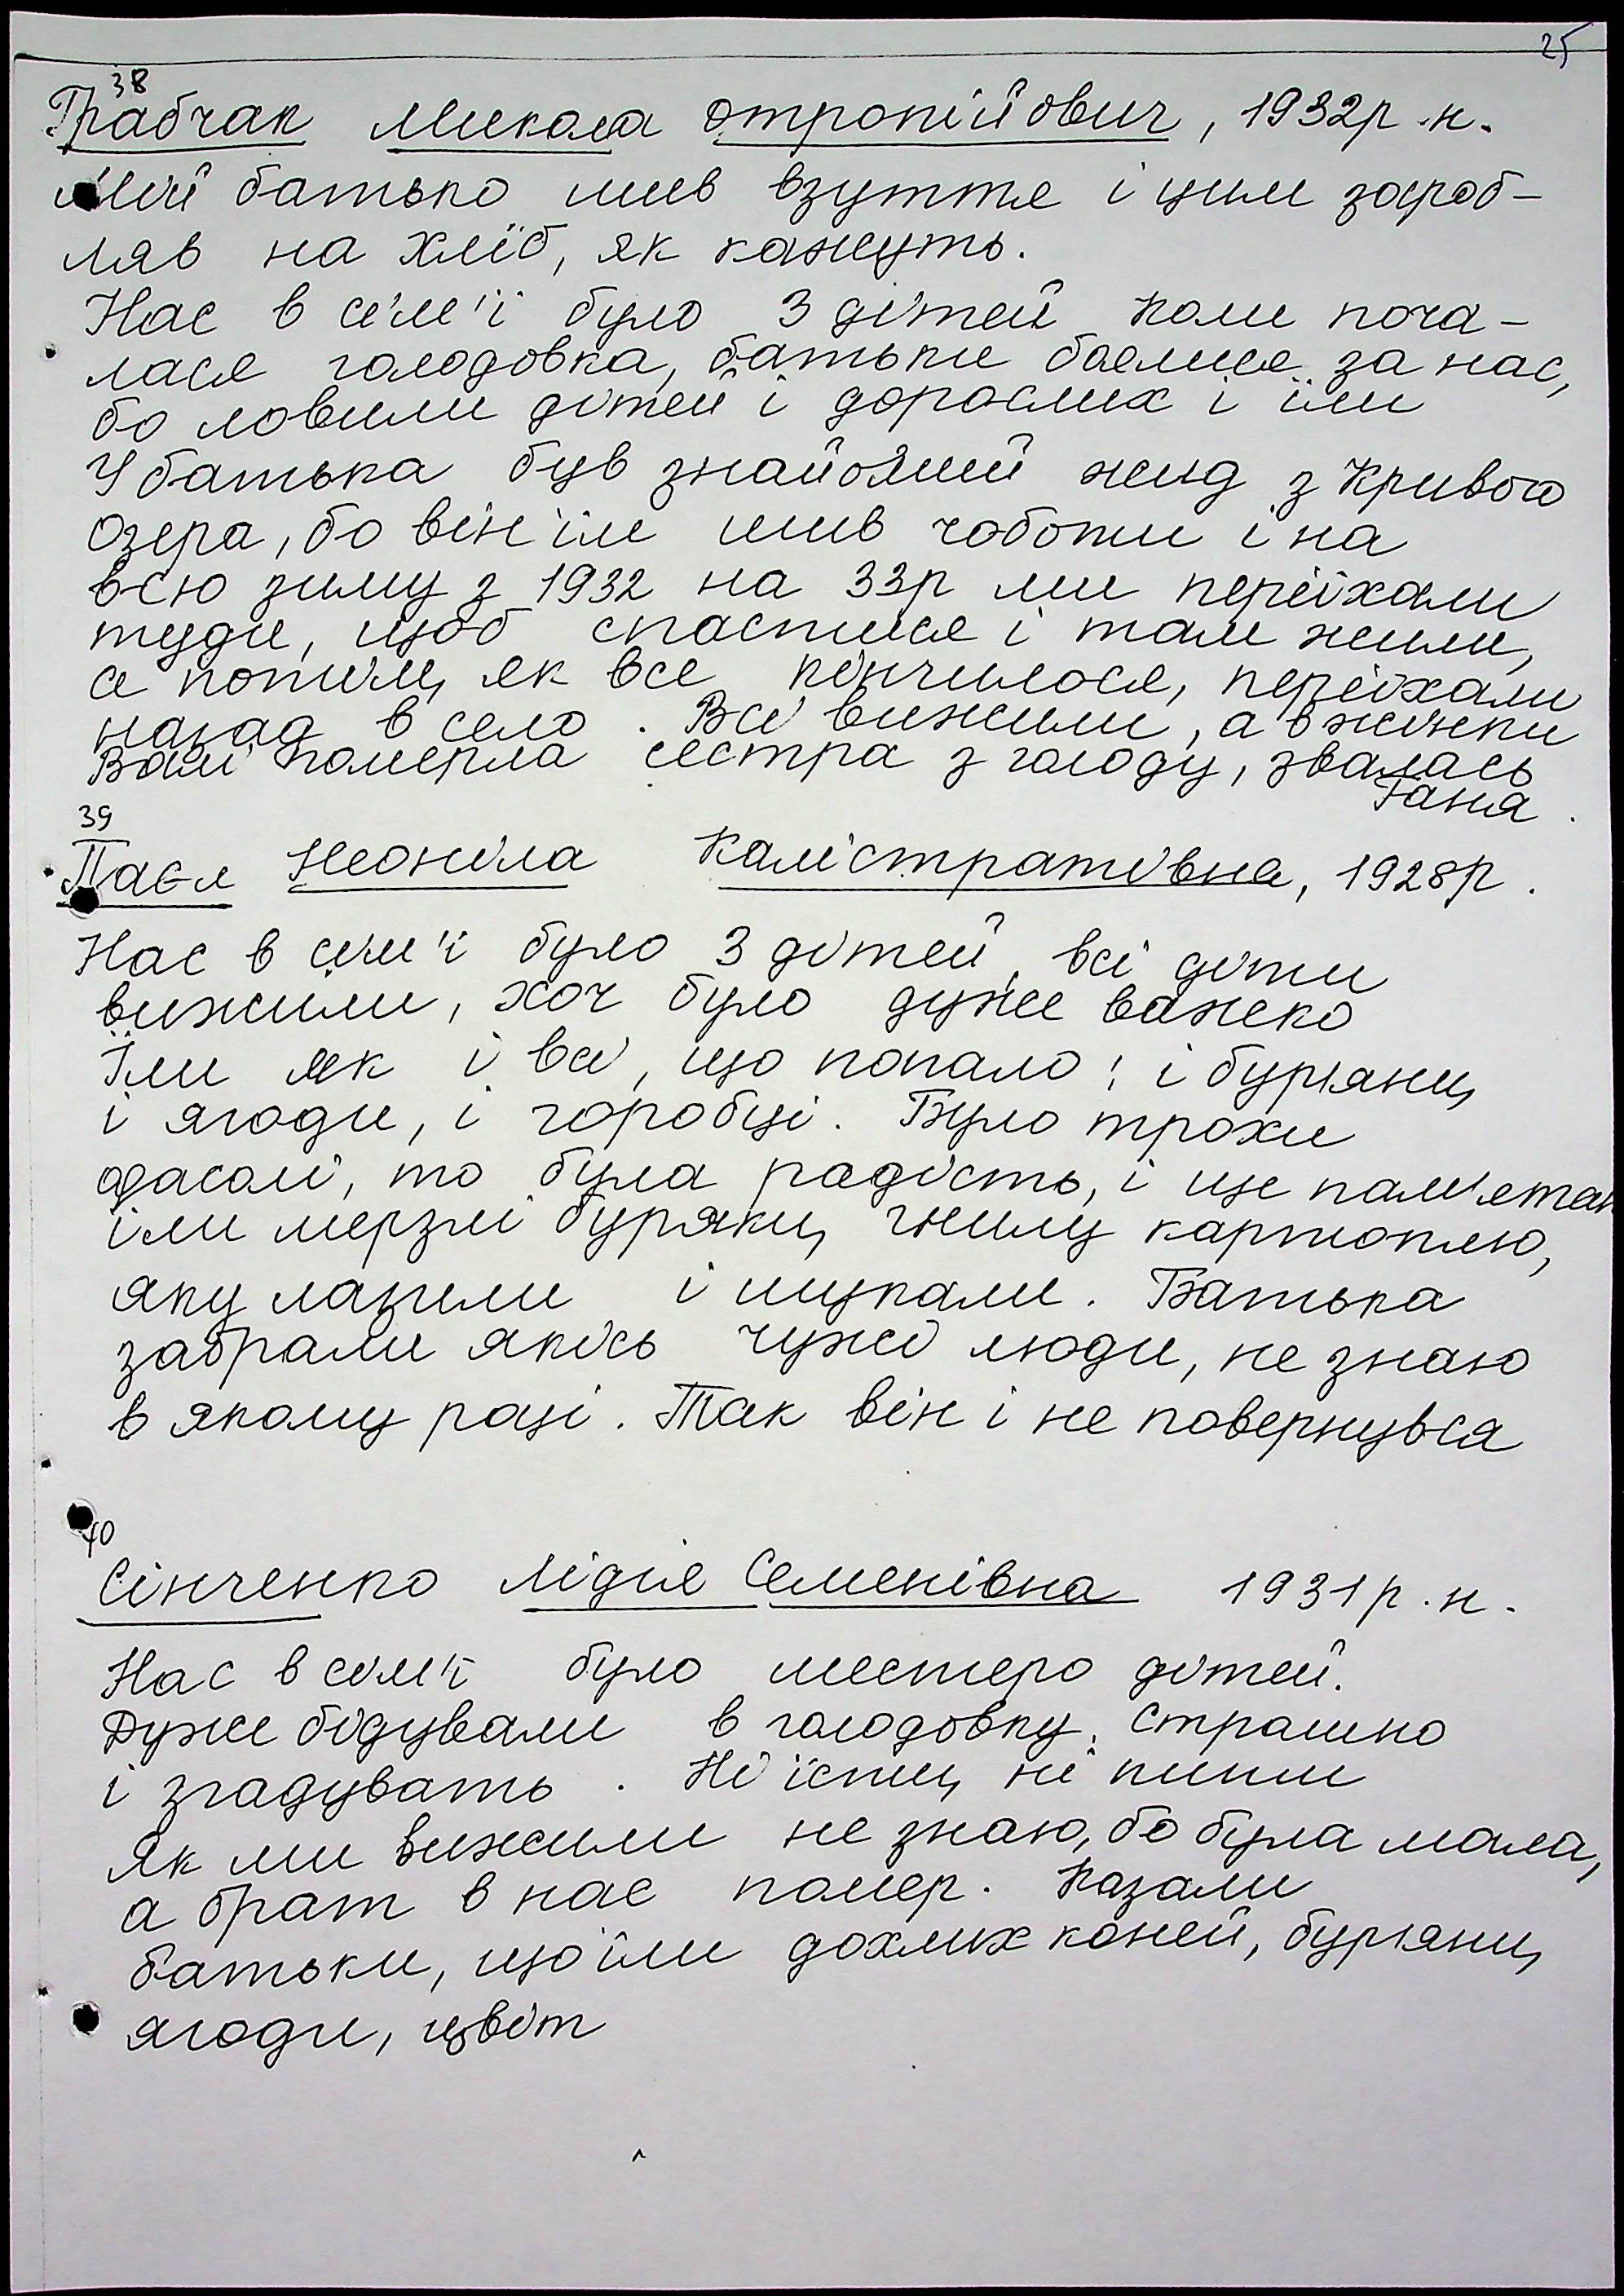 25
38
Грабчак Микола Отропійович, 1932р.н.
Мій батько шив взуття і цим зароб-
ляв на хліб, як кажуть.
Нас в сім'ї було 3 дітей коли поча-
лася голодовка, батьки боялися за нас,
бо ловили дітей і дорослих і їли
У батька був знайомий жид з Кривого
Озера, бо він їм шив чоботи і на
всю зиму з 1932 на 33р ми переїхали
туди, щоб спастися і там жили,
а потім, як все кінчилося, переїхали
назад в село. Всі вижили, а в жінки
Валі померла сестра з голоду, звалась
Ганя.
39
Паєл Неоніла Калістратівна, 1928р.
Нас в сім'ї було 3 дітей, всі діти
вижили, хоч було дуже важко
Їли як і всі, що попало: і бур'яни,
і ягоди, і горобці. Було трохи
фасолі, то була радість, і ще пам'ятаю
їли мерзлі буряки, гнилу картоплю,
яку лазили і шукали. Батька
забрали якісь чужі люди, не знаю
в якому році. Так він і не повернувся
40
Сінченко Лідія Семенівна 1931р.н.
Нас в сім'ї було шестеро дітей.
Дуже бідували в голодовку. Страшно
і згадувать. Ні їсти, ні пити
Як ми вижили не знаю, бо була мала,
а брат в нас помер. Казали
батьки, що їли дохлих коней, бур'яни,
ягоди, цвіт